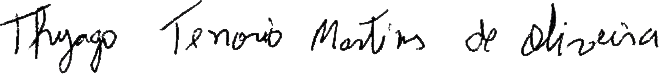 Thyago Tenorio Martins de Oliveira